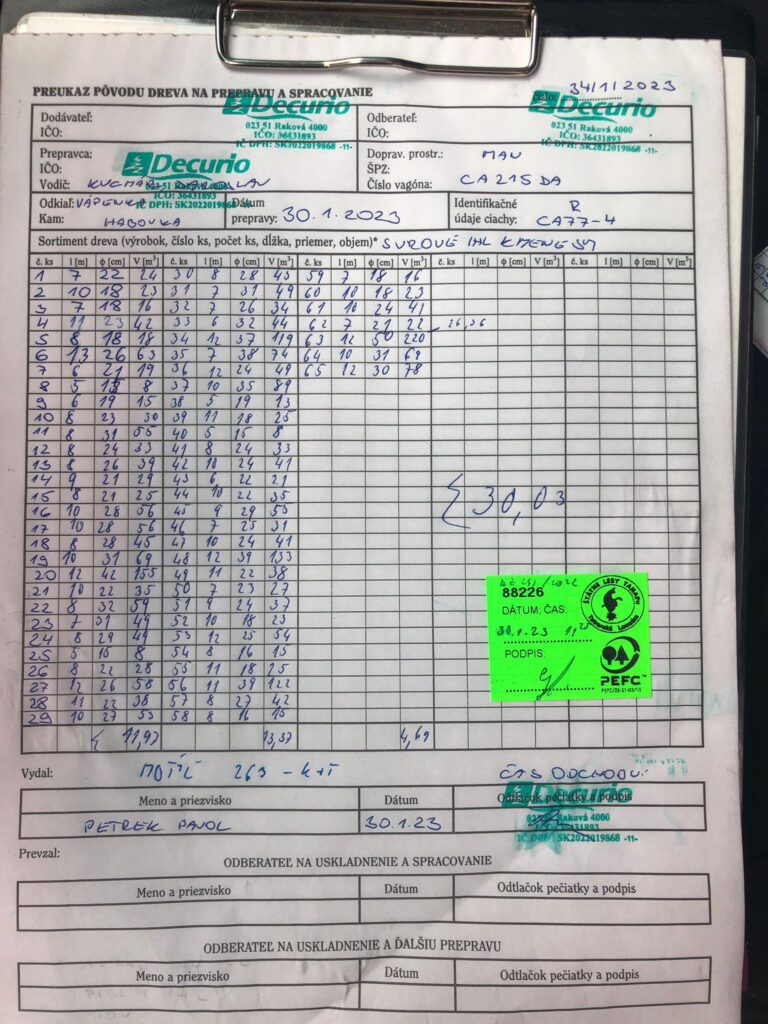 34/1/2023
PREUKAZ PÔVODU DREVA NA PREPRAVU A SPRACOVANIE
Číslo:
Decurio
023 51 Raková 4000
IČO: 36431893
IČ DPH: SK2022019868 -11-
Decurio
023 51 Raková 4000
IČO: 36431893
IČ DPH: SK2022019868 -11-
Dodávateľ:
IČO:
Odberateľ:
IČO:
Prepravca:
IČO:
Vodič:
Decurio
51 Raková 4000
IČO: 36431893
IČ DPH: SK2022019868 -11-
Doprav. prostr.: MAN
ŠPZ:
Číslo vagóna: CA215DA
Odkiaľ: VÁPENKA
Kam: HABOVKA
Dátum prepravy: 30.1.2023
Identifikačné údaje ciachy: R CA77-4
Sortiment dreva (výrobok, číslo ks, počet ks, dĺžka, priemer, objem)* SUROVÉ IHL KMENE
č. ks l [m] ϕ [cm] V [m³] č. ks l [m] ϕ [cm] V [m³] č. ks l [m] ϕ [cm] V [m³] č. ks l [m] ϕ [cm] V [m³] č. ks l [m] ϕ [cm] V [m³]
1 7 22 24 30 8 28 45 59 7 18 16
2 10 18 23 31 7 31 49 60 10 18 23
3 7 18 16 32 7 26 34 61 10 24 41
4 11 23 42 33 6 32 44 62 7 21 22 26,36
5 8 18 18 34 12 37 119 63 12 50 220
6 13 26 63 35 7 38 74 64 10 31 69
7 6 21 19 36 12 24 49 65 12 30 78
8 5 15 8 37 10 35 89
9 6 19 15 38 5 19 13
10 8 23 30 39 11 18 25
11 8 31 55 40 5 15 8
12 8 24 33 41 8 24 33
13 8 26 39 42 10 24 41
14 9 21 29 43 6 22 21
15 8 21 25 44 10 22 35
16 10 28 56 45 9 29 55
17 10 28 56 46 7 25 31
18 8 28 45 47 10 24 41
19 10 31 69 48 12 39 133
20 12 42 155 49 11 22 38
21 10 22 35 50 7 23 27
22 8 32 59 51 9 24 37
23 7 31 49 52 10 18 23
24 8 29 49 53 12 25 54
25 5 15 8 54 8 16 15
26 8 22 28 55 11 18 25
27 12 26 58 56 11 39 122
28 11 22 38 57 8 27 42
29 10 27 53 58 8 16 15
Σ 11,97 13,37 4,69
Σ 30,03
88226
DÁTUM, ČAS:
30.1.23 11
PODPIS:
ŠTÁTNE LESY TANAPU
Tatranská Lomnica
PEFC™
Vydal: 263 - k+t
ČAS ODCHODU:
Meno a priezvisko Dátum Odtlačok pečiatky a podpis
PETREK PAVOL 30.1.23
Decurio
023 51 Raková 4000
IČO: 36431893
IČ DPH: SK2022019868 -11-
Prevzal:
ODBERATEĽ NA USKLADNENIE A SPRACOVANIE
Meno a priezvisko Dátum Odtlačok pečiatky a podpis
ODBERATEĽ NA USKLADNENIE A ĎALŠIU PREPRAVU
Meno a priezvisko Dátum Odtlačok pečiatky a podpis